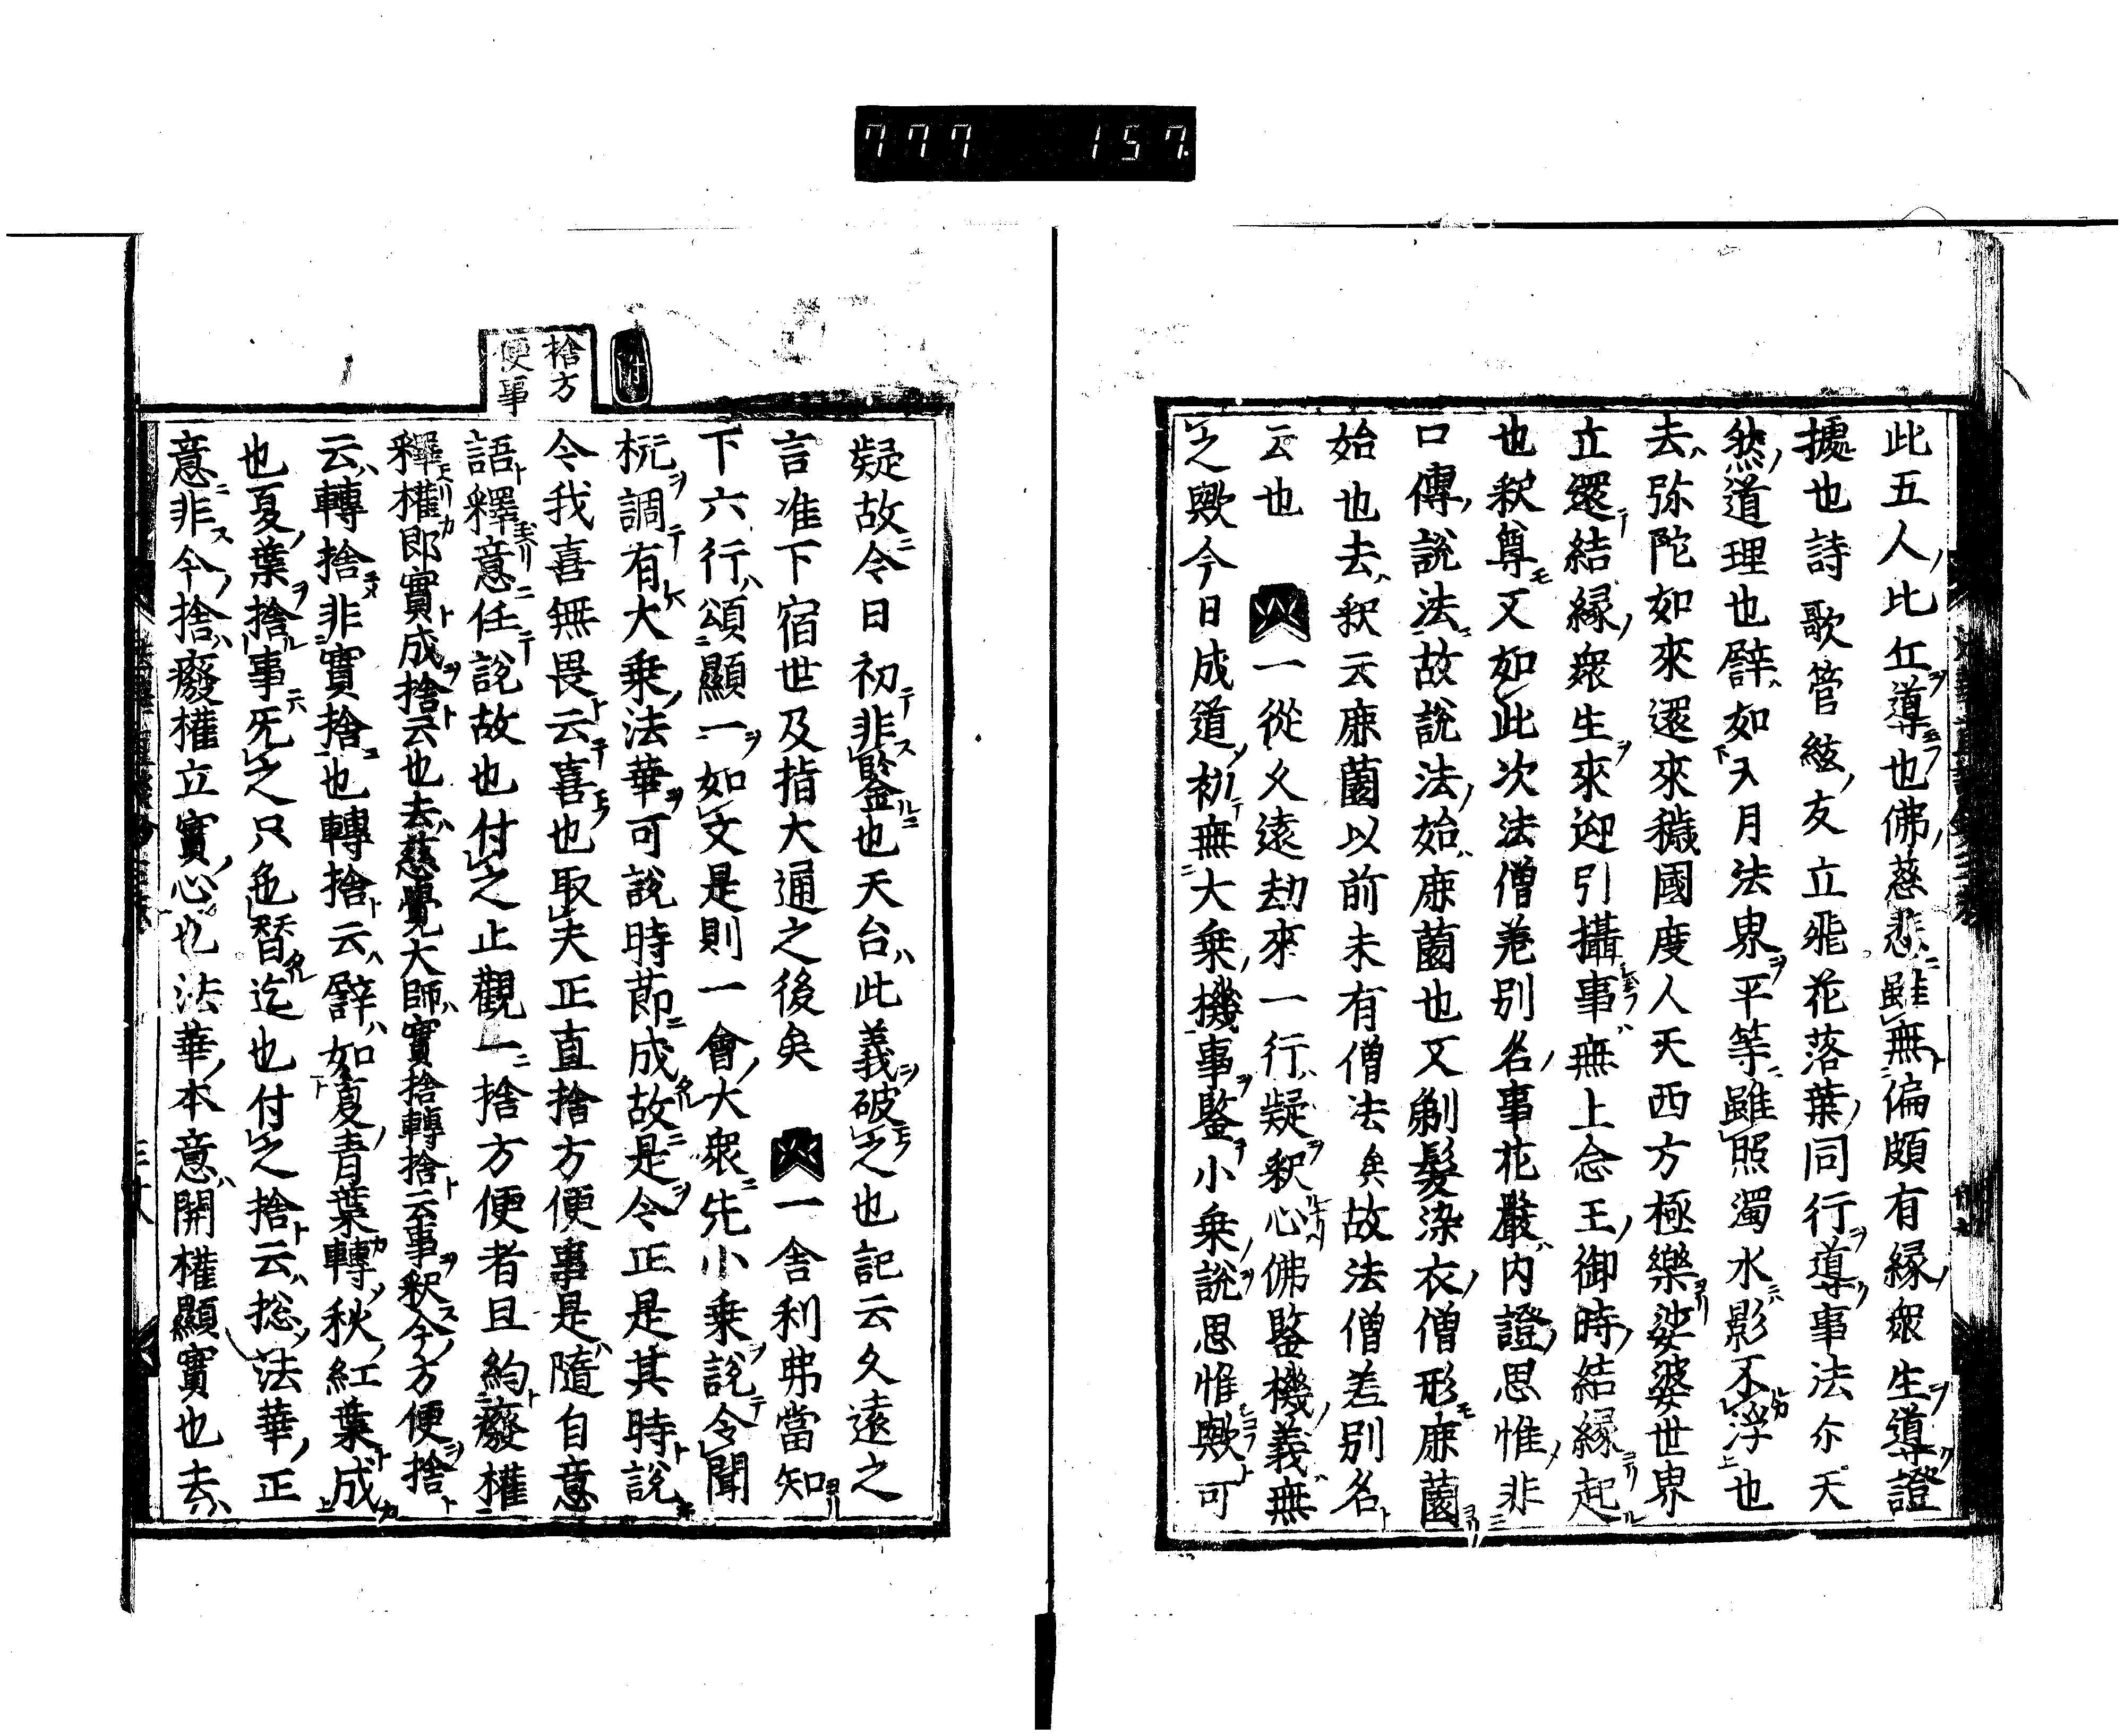 777 157
此五人比丘導也佛慈悲雖無偏頗有縁衆生導證
據也詩歌管絃友立飛花落葉同行導事法尒天
然道理也譬如天月法界平等雖照濁水影不浮也
去弥陀如來還來穢國度人天西方極樂娑婆世界
立還結縁衆生來迎引攝事無上念王御時結縁起
也釈尊又如此次法僧差別名事花嚴内證思惟非
口傳說法故說法始鹿薗也又剃髪染衣僧形鹿薗
始也去釈云鹿薗以前未有僧法矣故法僧差別名
云也 一從久遠劫來一行疑釈心佛鑒機義無
之歟今日成道初無大乗機事鑒小乗說思惟歟可
疑故今日初非鑒也天台此義破之也記云久遠之
言准下宿世及指大通之後矣 一舎利弗當知
下六行頌顯一如文是則一會大衆先小乗說令聞
枙調有大乗法華可說時莭成故是今正是其時說
今我喜無畏云喜也取夫正直捨方便事是隨自意
語釋意任說故也付之止觀一捨方便者且約癈權
釋權即實成捨云也去慈覺大師實捨轉捨云事釈今方便捨
云轉捨非實捨也轉捨云譬如夏青葉轉秋紅葉成
也夏葉捨事死之只色替迄也付之捨云捴法華正
意非今捨癈權立實心也法華本意開權顯實也去
捨方
便事
附